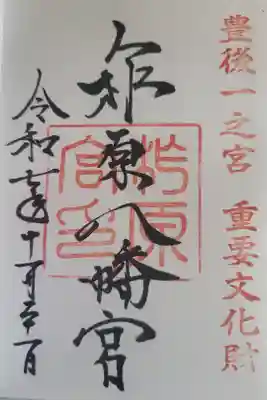 豊後一之宮 重要文化財
柞原八幡宮
柞原
宮印
令和七年十一月